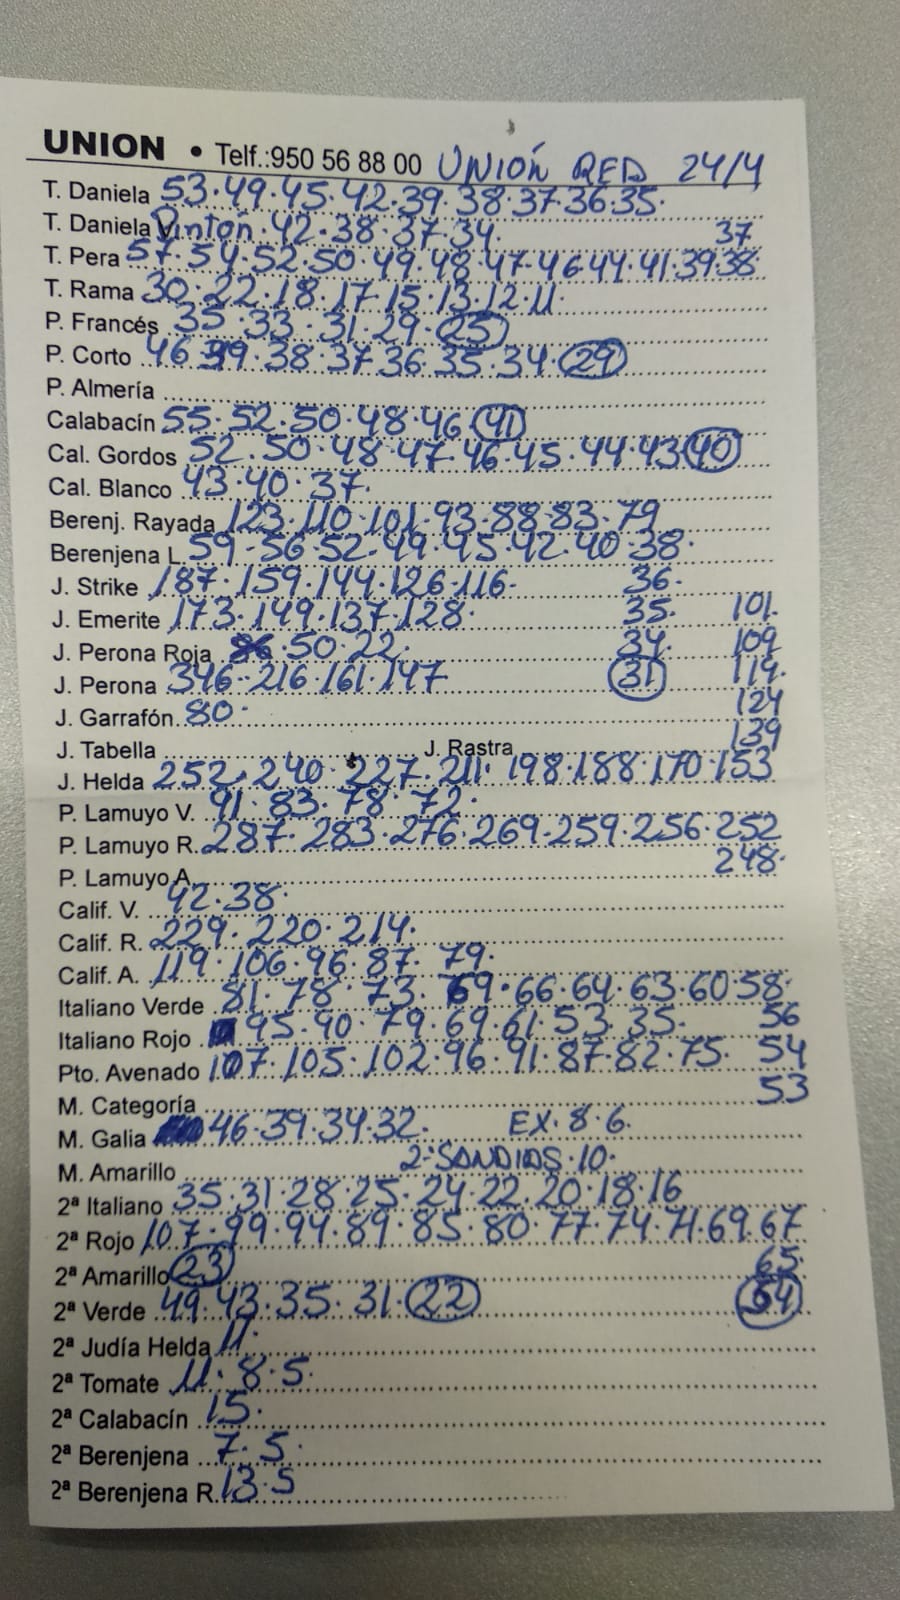 UNION • Telf.:950 56 88 00 UNIÓN RED 24/4
T. Daniela 53·49·45·42·39·38·37·36·35·
T. Daniela Pinton·42·38·37·34· 37
T. Pera 57·54·52·50·49·48·47·46·44·41·39·38·
T. Rama 30·22·18·17·15·13·12·11·
P. Francés 35·33·31·29·25
P. Corto 46·39·38·37·36·35·34·29
P. Almería
Calabacín 55·52·50·48·46·41
Cal. Gordos 52·50·48·47·46·45·44·43·40
Cal. Blanco 43·40·37·
Berenj. Rayada 123·110·101·93·88·83·79
Berenjena L. 59·56·52·49·45·42·40·38·
J. Strike 187·159·144·126·116· 36·
J. Emerite 173·149·137·128· 35· 101·
J. Perona Roja 50·22· 34 109
J. Perona 346·216·161·147 31 119·
J. Garrafón 80· 124
J. Tabella J. Rastra 139
J. Helda 252·240·227·211·198·188·170·153
P. Lamuyo V. 91·83·78·72·
P. Lamuyo R. 287·283·276·269·259·256·252
P. Lamuyo A. 248·
Calif. V. 42·38·
Calif. R. 229·220·214·
Calif. A. 119·106·96·87·79·
Italiano Verde 81·78·73·69·66·64·63·60·58·
Italiano Rojo 95·90·79·69·61·53·35· 56
Pto. Avenado 107·105·102·96·91·87·82·75· 54
M. Categoría 53
M. Galia 46·39·34·32· EX·8·6·
M. Amarillo 2ª SANDIAS·10·
2ª Italiano 35·31·28·25·24·22·20·18·16
2ª Rojo 107·99·94·89·85·80·77·74·71·69·67
2ª Amarillo 23 65·
2ª Verde 49·43·35·31·22
2ª Judía Helda 11·
2ª Tomate 11·8·5·
2ª Calabacín 15·
2ª Berenjena 7·5·
2ª Berenjena R. 13·5